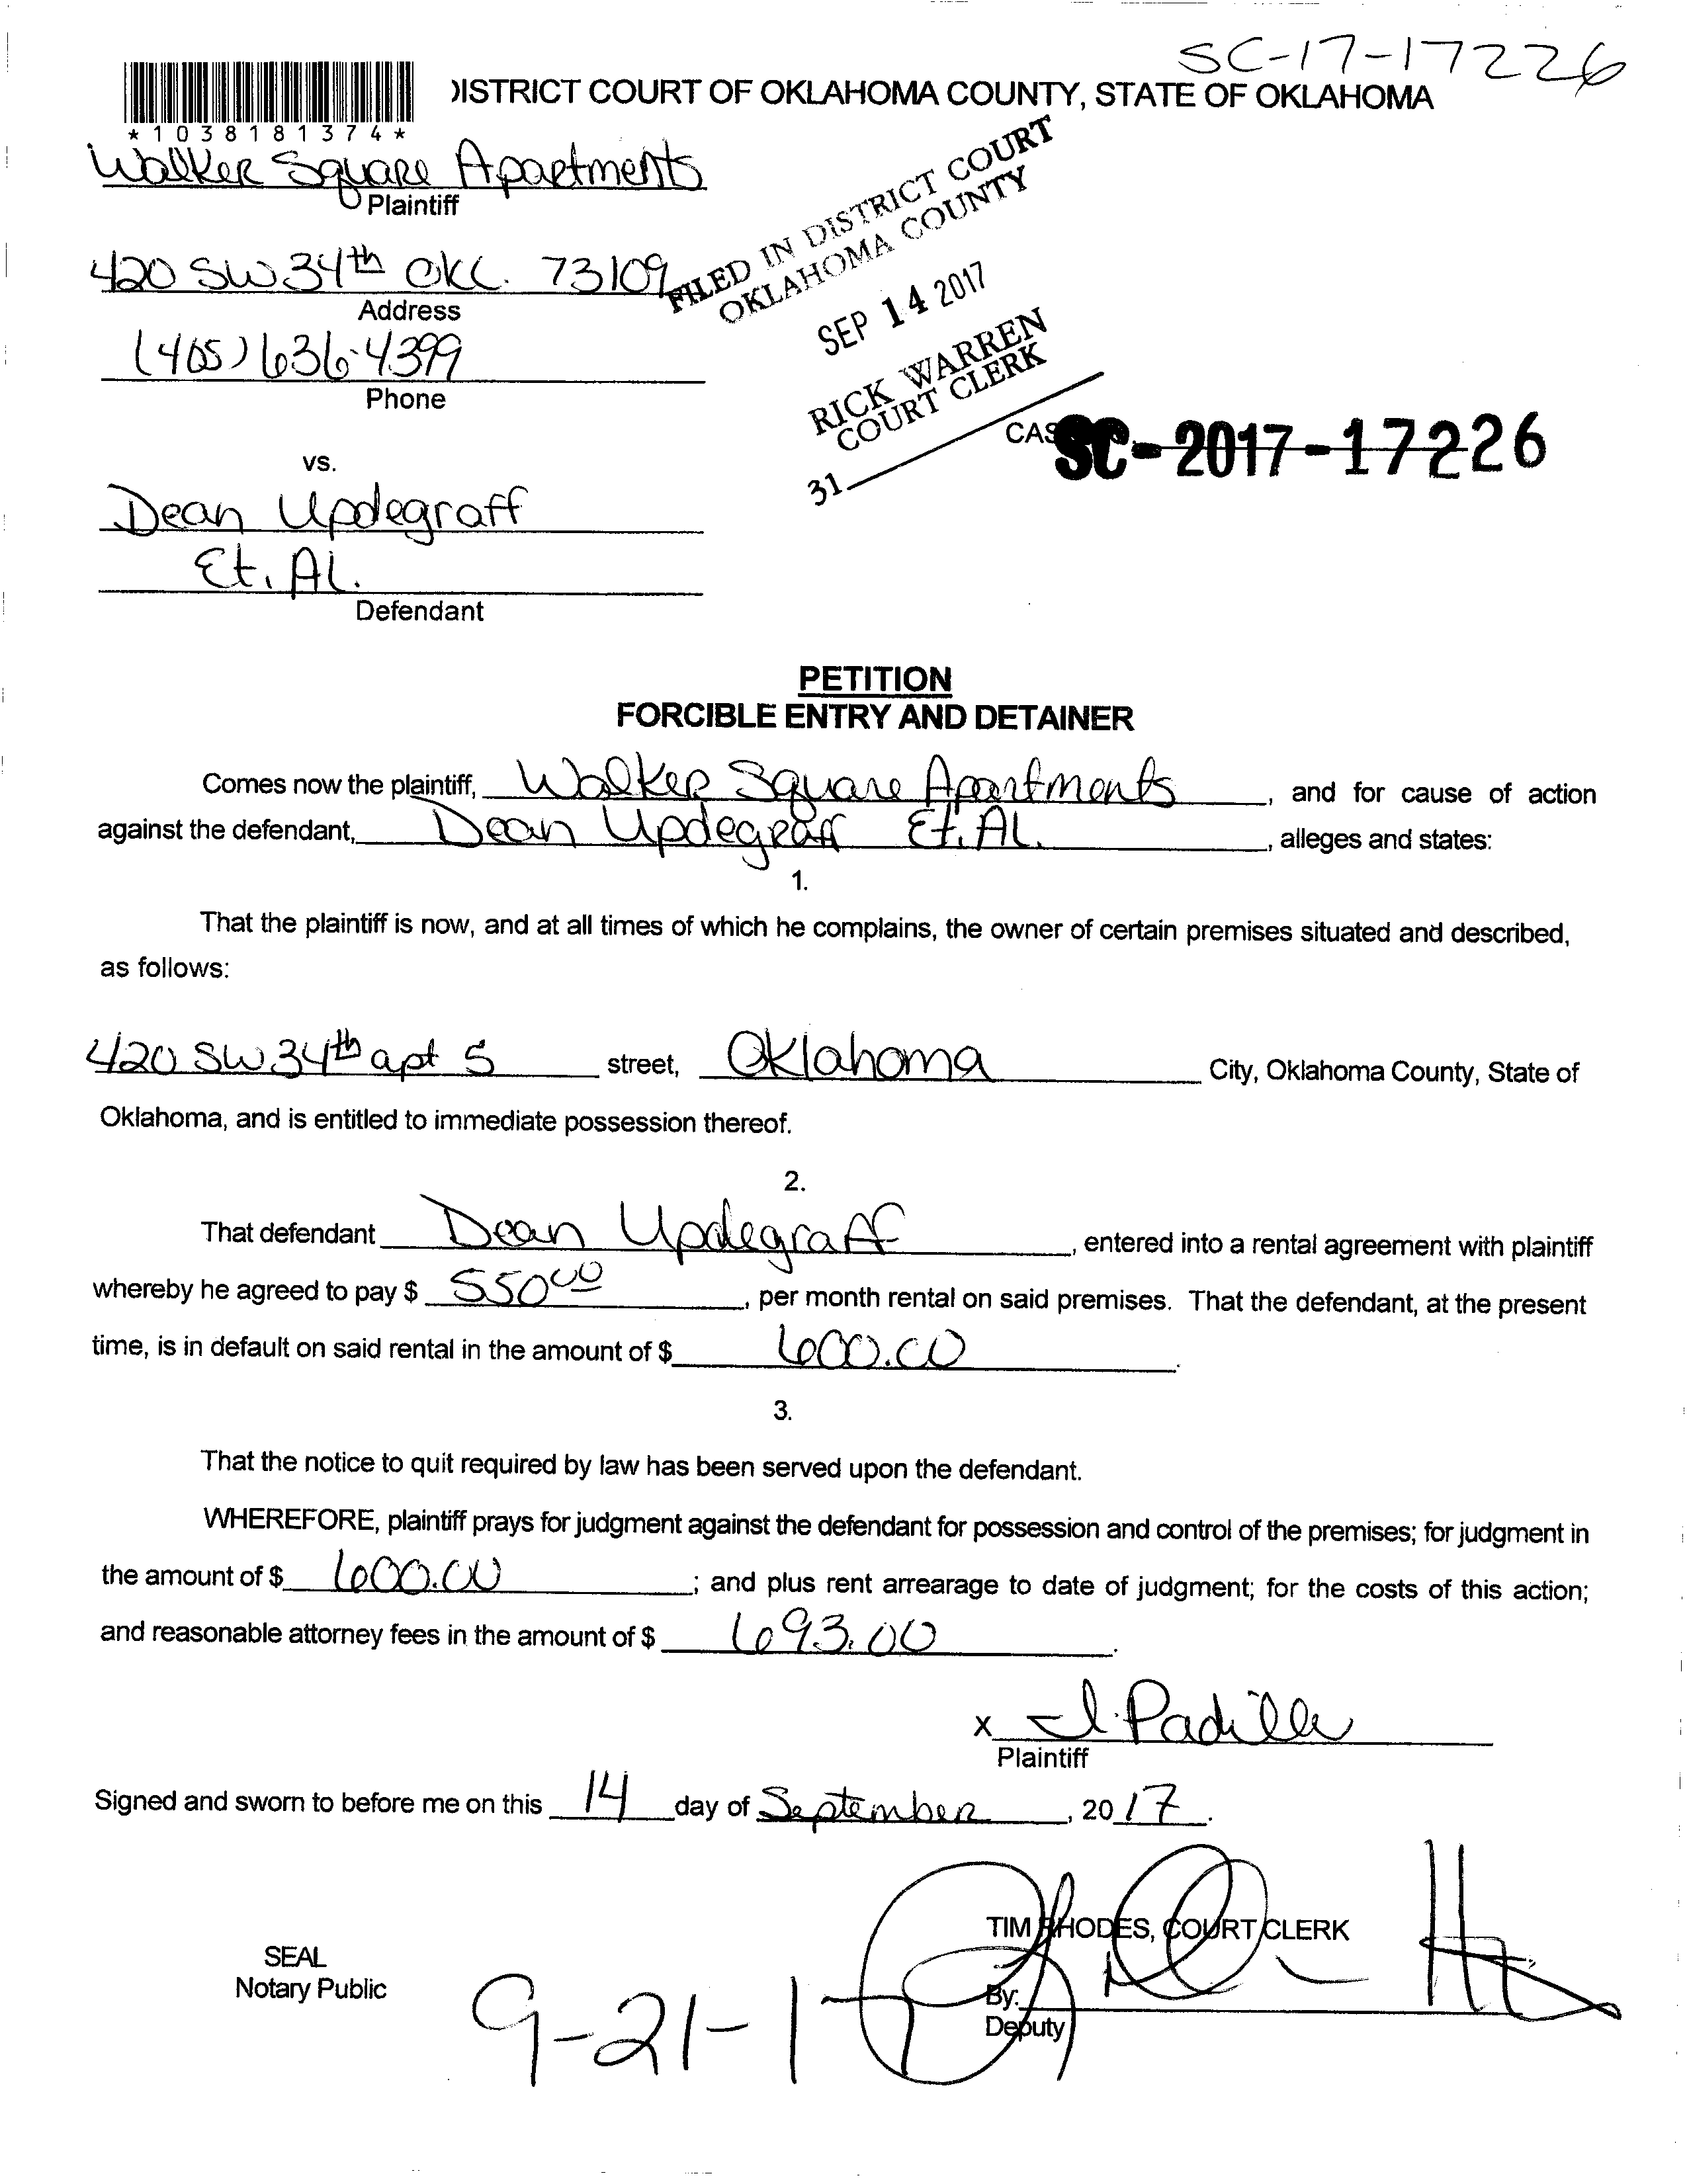 SC-17-17226
DISTRICT COURT OF OKLAHOMA COUNTY, STATE OF OKLAHOMA
*1038181374*
Walker Square Apartments
Plaintiff
420 SW 34th OKC. 73109
Address
(405) 636-4399
Phone
FILED IN DISTRICT COURT
OKLAHOMA COUNTY
SEP 14 2017
RICK WARREN
COURT CLERK
31
CAS SC-2017-17226
vs.
Dean Updegraff
Et. Al.
Defendant
PETITION
FORCIBLE ENTRY AND DETAINER
Comes now the plaintiff, Walker Square Apartments, and for cause of action
against the defendant, Dean Updegraff Et. Al., alleges and states:
1.
That the plaintiff is now, and at all times of which he complains, the owner of certain premises situated and described,
as follows:
420 SW 34th apt 5 street, Oklahoma City, Oklahoma County, State of
Oklahoma, and is entitled to immediate possession thereof.
2.
That defendant Dean Updegraff, entered into a rental agreement with plaintiff
whereby he agreed to pay $ 550.00, per month rental on said premises. That the defendant, at the present
time, is in default on said rental in the amount of $ 600.00.
3.
That the notice to quit required by law has been served upon the defendant.
WHEREFORE, plaintiff prays for judgment against the defendant for possession and control of the premises; for judgment in
the amount of $ 600.00; and plus rent arrearage to date of judgment; for the costs of this action;
and reasonable attorney fees in the amount of $ 693.00.
x J. Padilla
Plaintiff
Signed and sworn to before me on this 14 day of September, 2017.
TIM RHODES, COURT CLERK
SEAL
Notary Public
By:
Deputy
9-21-17